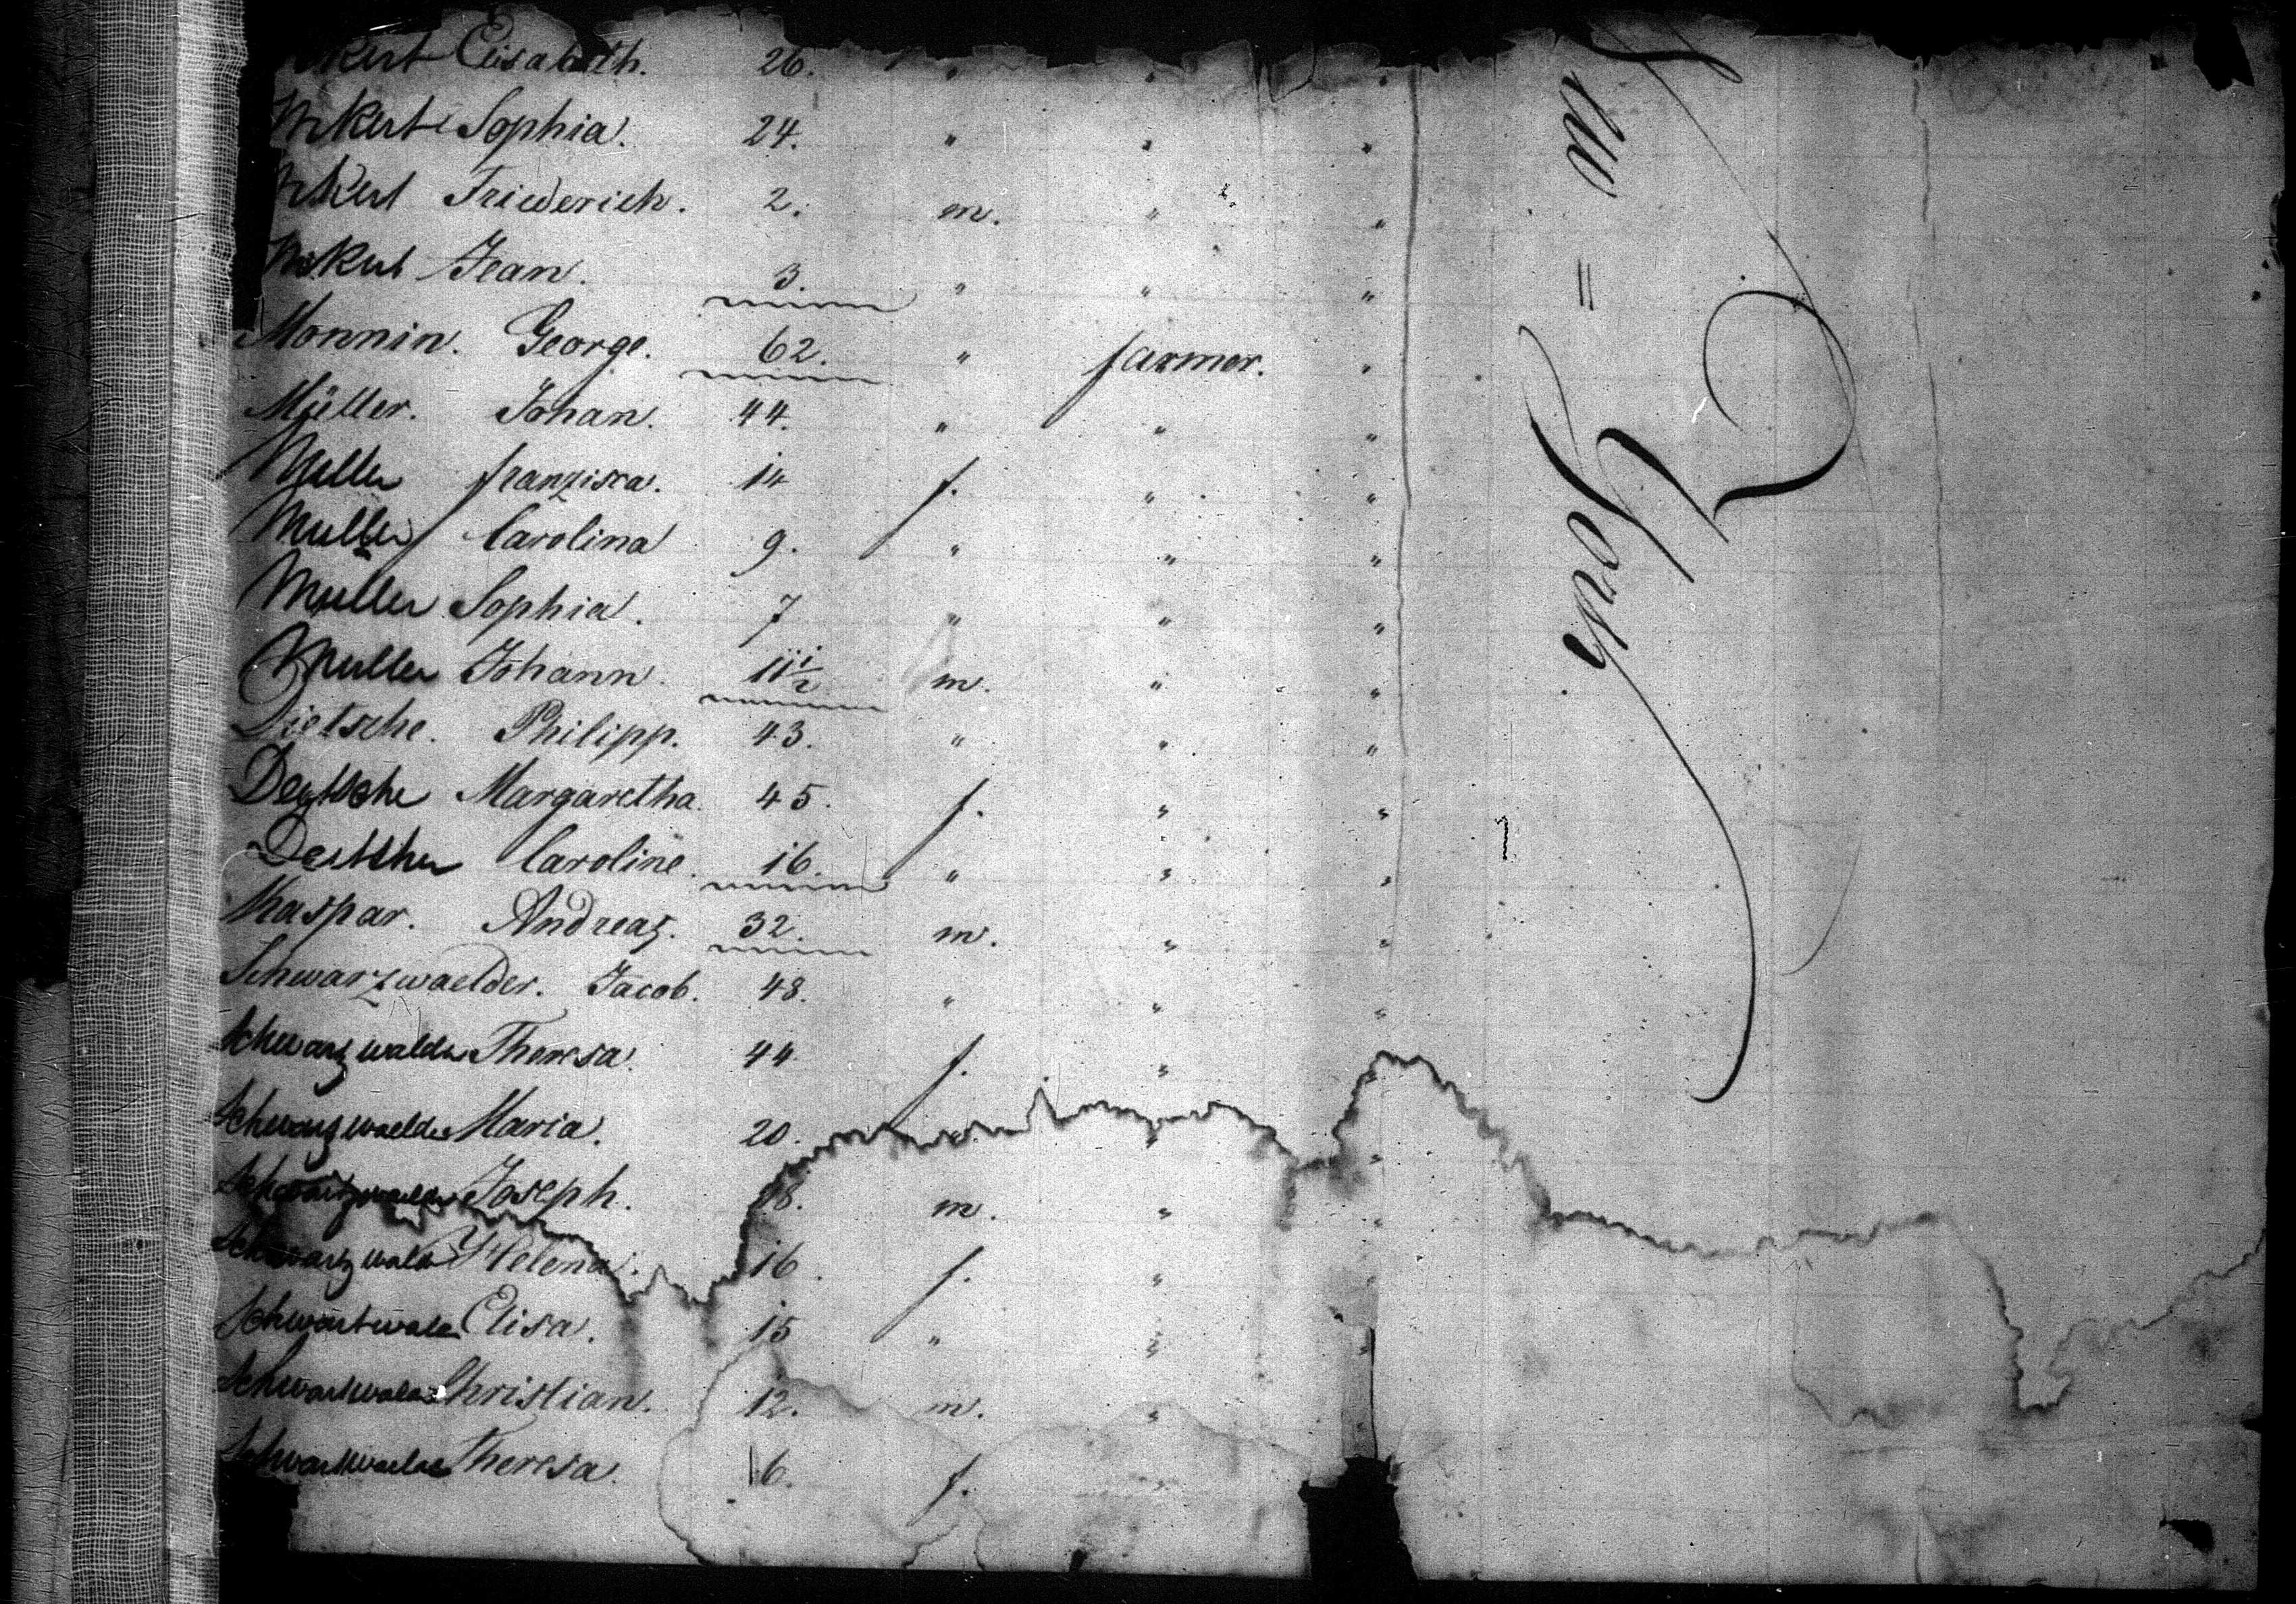 Elisabeth. 26. " " "
Sophia. 24. " " "
Friederich. 2. m. " "
Jean. 3. " " "
Monnin. George. 62. " farmer. "
Müller. Johan. 44. " " "
Muller franzisca. 14 f. " "
Muller Carolina 9. " " "
Muller Sophia. 7 " " "
Muller Johann. 11 1/2 m. " "
Dietsche. Philipp. 43. " " "
Deytsche Margaretha. 45. f. " "
Caroline. 16. " " "
Kaspar. Andreas. 32. m. " "
Schwarzwaelder. Jacob. 48. " " "
Schwarzwalder Theresa. 44 f. " "
Schwarzwaelder Maria. 20. " " "
Schwartzwaelder Joseph. 18. m. " "
Schwartzwald Helena. 16. f. " "
Schwartwald Elisa. 15 " " "
Schwartwald Christian. 12. m. "
Schwartwaeld Theresa. 6. f. "
New = York